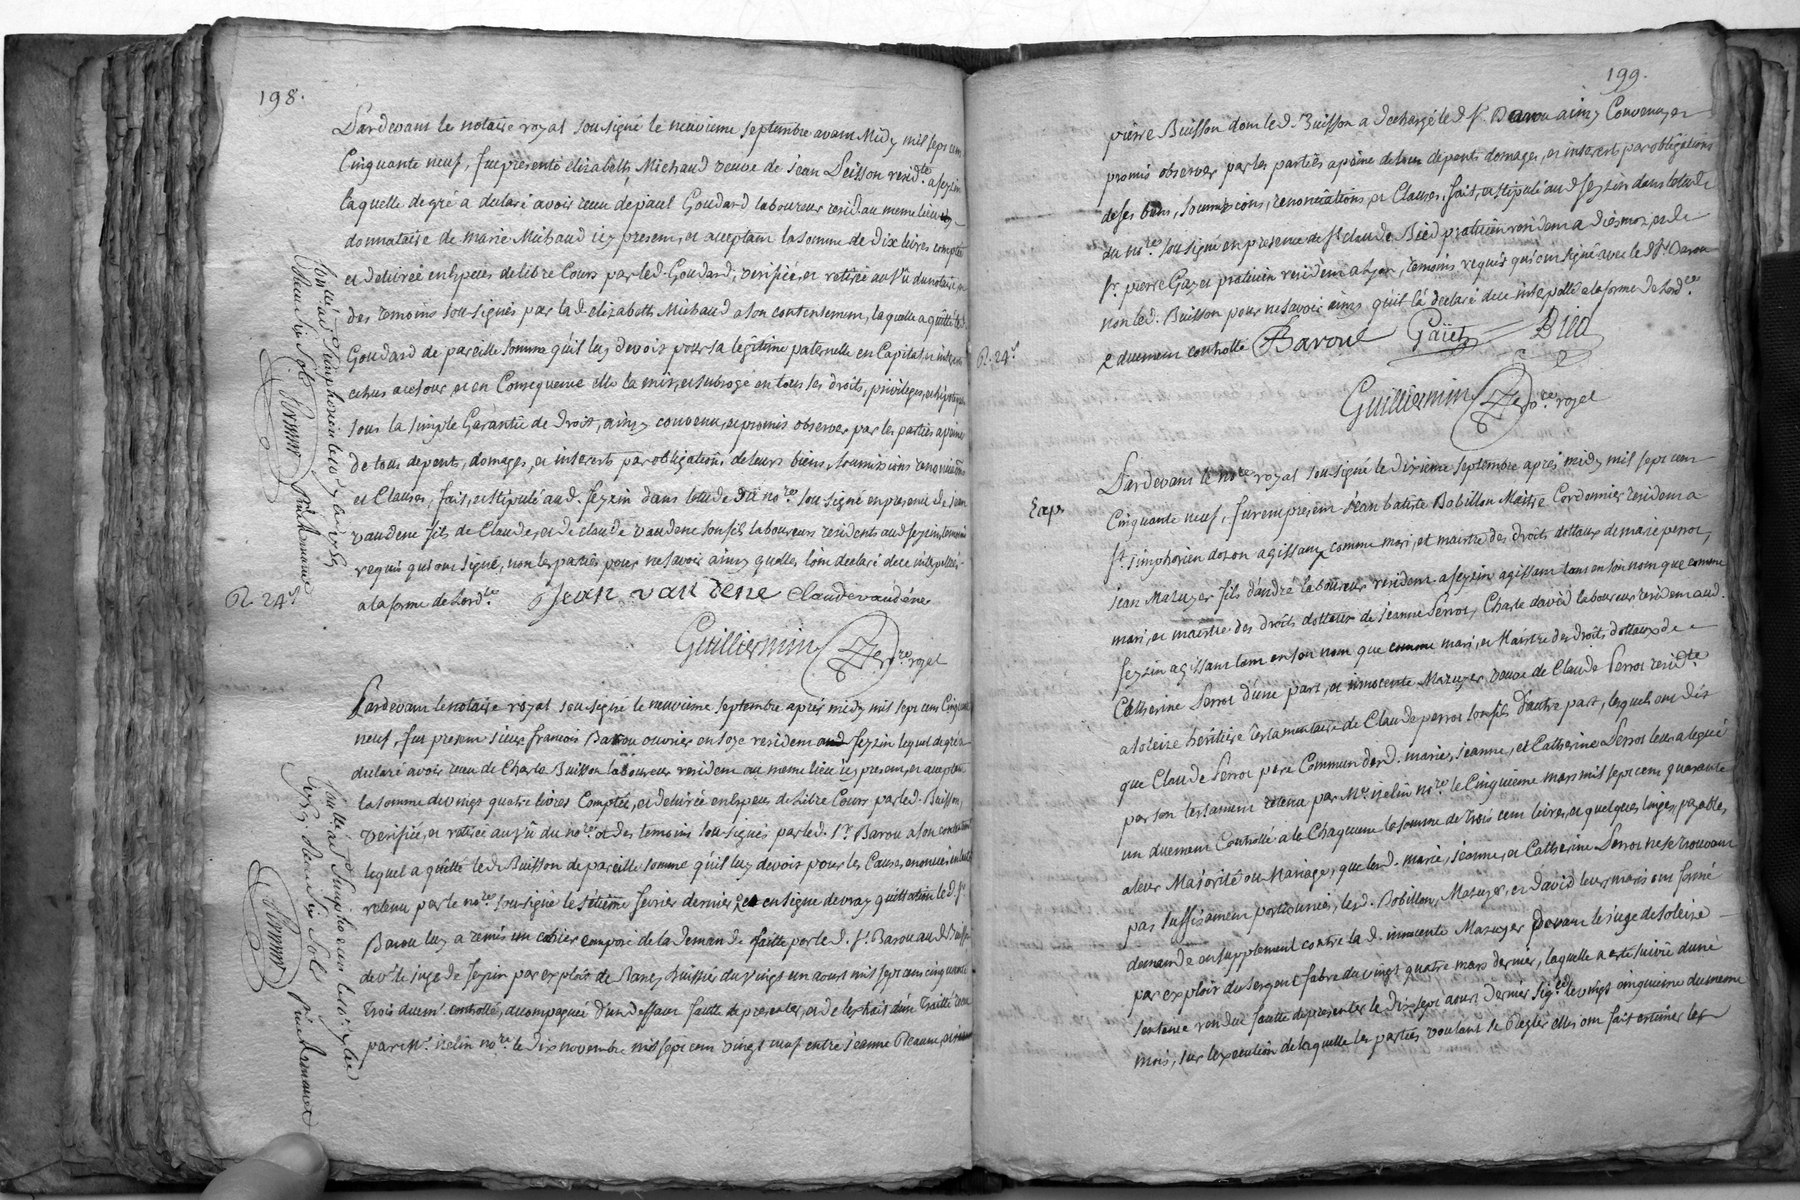 198.
Pardevant le notaire royal sousigné le neuvieme septembre avant Midy mil sept cent
Cinquante neuf, fut presente elizabeth Michaud veuve de jean Poisson resid.te a seyzin
laquelle de gré a declaré avoir receu de paul Goudard laboureur resid. au meme lieu
donnataire de marie Michaud icy present, et aceptant la somme de Dix livres comptée
et delivrée en Especes de libre Cours par led. Goudard, verifiée, et retirée au vû du notaire, et
des temoins sousignés par la d. elizabeth Michaud a son contentement, la quelle a quitté led.
Goudard de pareille somme qu'il luy devoit pour sa legitime paternelle en Capital, et interets
echus a ce jour, et en Consequence elle la mis, et subrogé en tous ses droits, privileges, et hipoteques
sous la simple Garantie de Droit, ainsy convenu, et promis observer par les parties a peine
de tous depents, domages, et interets par obligations de leurs biens, soumissions renonciations
et Clauses, fait, et stipulé aud. seyzin dans l'etude du no.re sousigné en presence de Jean
vaudene fils de Claude, et de claude vaudene son fils laboureurs residents aud. seyzin, temoins
requis qui ont signé, non les parties pour ne savoir ainsy quelles l'ont declaré de ce interpellées
a la forme de Lord.ce
Jean vaudene claude vaudéne
R. 24 s
Guilliermin no.re royal
Pardevant le notaire royal sousigné le neuvieme septembre après midy mil sept cent Cinquante
neuf, fut present sieur francois Barou ouvrier en soye resident aud. seyzin lequel de gré a
declaré avoir receu de Charle Buisson laboureur resident au meme lieu icy present, et aceptant
la somme de vingt quatre livres Comptée, et delivrée en Especes de Libre Cours par led. Buisson,
Verifiée, et retirée au vû du no.re et des temoins sousignés par led. s.r Barou a son contentement
lequel a quitté led. Buisson de pareille somme qu'il luy devoit pour les Causes enoncées en l'acte
retenu par le no.re sousigné le fevrier dernier et en signe de vray quittation led. s.r
Barou luy a remis un cahier composé de la demande faitte par led. s.r Barou aud. Buisson
dev.t le juge de seyzin par exploit de Huissier du vingt un aoust mil sept cent cinquante
trois duem.t controllé, acompagnée d'un deffaut faute de presenter, et de l'extrait d'un traitté receu
par M.e velin no.re le dix novembre mil sept cent vingt neuf entre jeanne
199.
pierre Buisson dont led. Buisson a dechargé led. s.r Barou ainsy Convenu, et
promis observer par les parties a peine de tous depents domages, et interets par obligations
de ses biens, soumissions, renonciations, et Clauses, fait, et stipulé aud. seyzin dans l'etude
du no.re sousigné en presence de s.r claude Bied praticien resident a diesmoz, et de
s.r pierre Gayet praticien resident a Lyon, temoins requis qui ont signé avec le d. s.r Barou
non led. Buisson pour ne savoir ainsy qu'il la declaré de ce interpellé a la forme de Lord.ce
R. 24 s
e duement controllé Barout Gaïet Bied
Guilliermin no.re royal
Exp.
Pardevant le no.re royal sousigné le dixieme septembre après midy mil sept cent
Cinquante neuf, furent present jean batiste Bobillon Maitre Cordonnier resident a
s.t simphorien dozon agissant comme mari, et maitre des droits dottaux de marie perrot,
jean Mazuyer fils d'andré laboureur resident a seyzin agissant tant en son nom que comme
mari, et maitre des droits dottaux de jeanne Perrot, Charle david laboureur resident aud.
seyzin agissant tant en son nom que comme mari, et Maitre des droits dottaux de
Catherine Perrot d'une part, et innocente Mazuyer veuve de Claude Perrot resid.te
a soleize héritiere testamentaire de Claude perrot son fils d'autre part, lesquels ont dit
que Claude Perrot pere Commun desd. marie, jeanne, et Catherine Perrot leur a legué
par son testament retenu par M.e velin no.re le Cinquieme mars mil sept cent quarante
un duement Controllé a le Chaqcune la somme de trois cent livres, et quelques linges, payables
a leur Majorité ou Mariage, que lesd. marie, jeanne, et Catherine Perrot ne se trouvant
pas suffisament portionnées, lesd. Bobillon, Mazuyer, et david leurs maris ont formé
demande en supplement contre la d. innocente Mazuyer devant le juge de soleize
par exploit du sergent fabre du vingt quatre mars dernier, laquelle a eté suivie d'une
sentence rendue faute de presenter le dix sept aout dernier sig.ée le vingt cinquieme du meme
mois, sur l'execution de laquelle les parties voulant se Regler elles ont fait estimer les